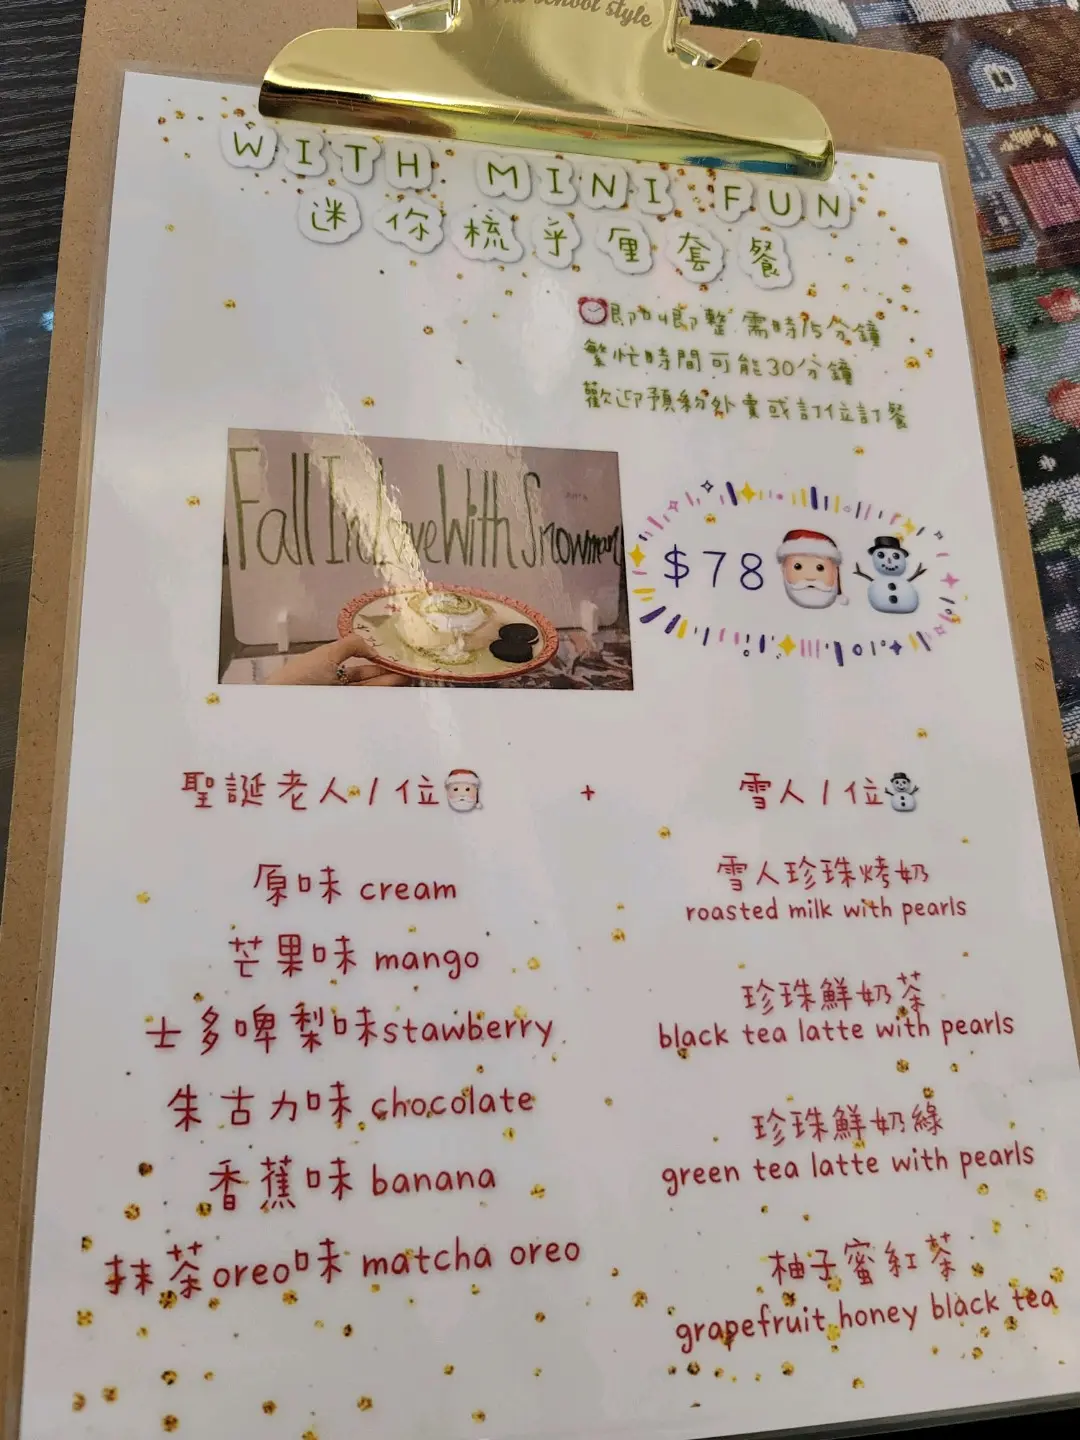 school style
WITH MINI FUN
迷你梳乎厘套餐
即叫即整 需時15分鐘
繁忙時間可能30分鐘
歡迎預約外賣或訂位訂餐
Fall In Love With Snowman
$78
聖誕老人1位 + 雪人1位
原味 cream
芒果味 mango
士多啤梨味stawberry
朱古力味 chocolate
香蕉味 banana
抹茶oreo味 matcha oreo
雪人珍珠烤奶
roasted milk with pearls
珍珠鮮奶茶
black tea latte with pearls
珍珠鮮奶綠
green tea latte with pearls
柚子蜜紅茶
grapefruit honey black tea